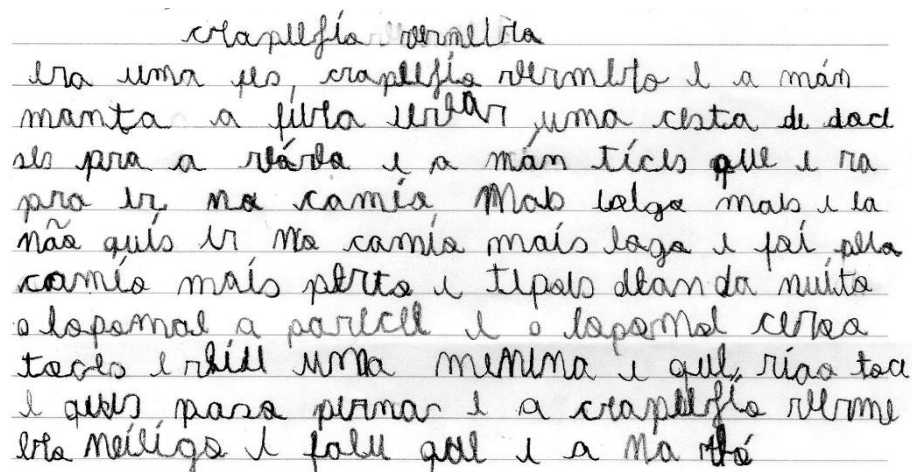 crapellfío vermelra
era uma ves, crapellfío vermelo e a mán
manta a filra levar uma cesta de doce
ses pra a vávla e a mán tíces que e ra
pra ir no camío Mas lolgo mais e la
não quis ir no camío mais logo i foi pelo
camío mais perto e tepois dean da nuito
o lopomal a pareceu e o lopomal
e viu uma menina e que
e quis pasa perna e a crapellfío verme
lra neiligo e falu que i a na vó